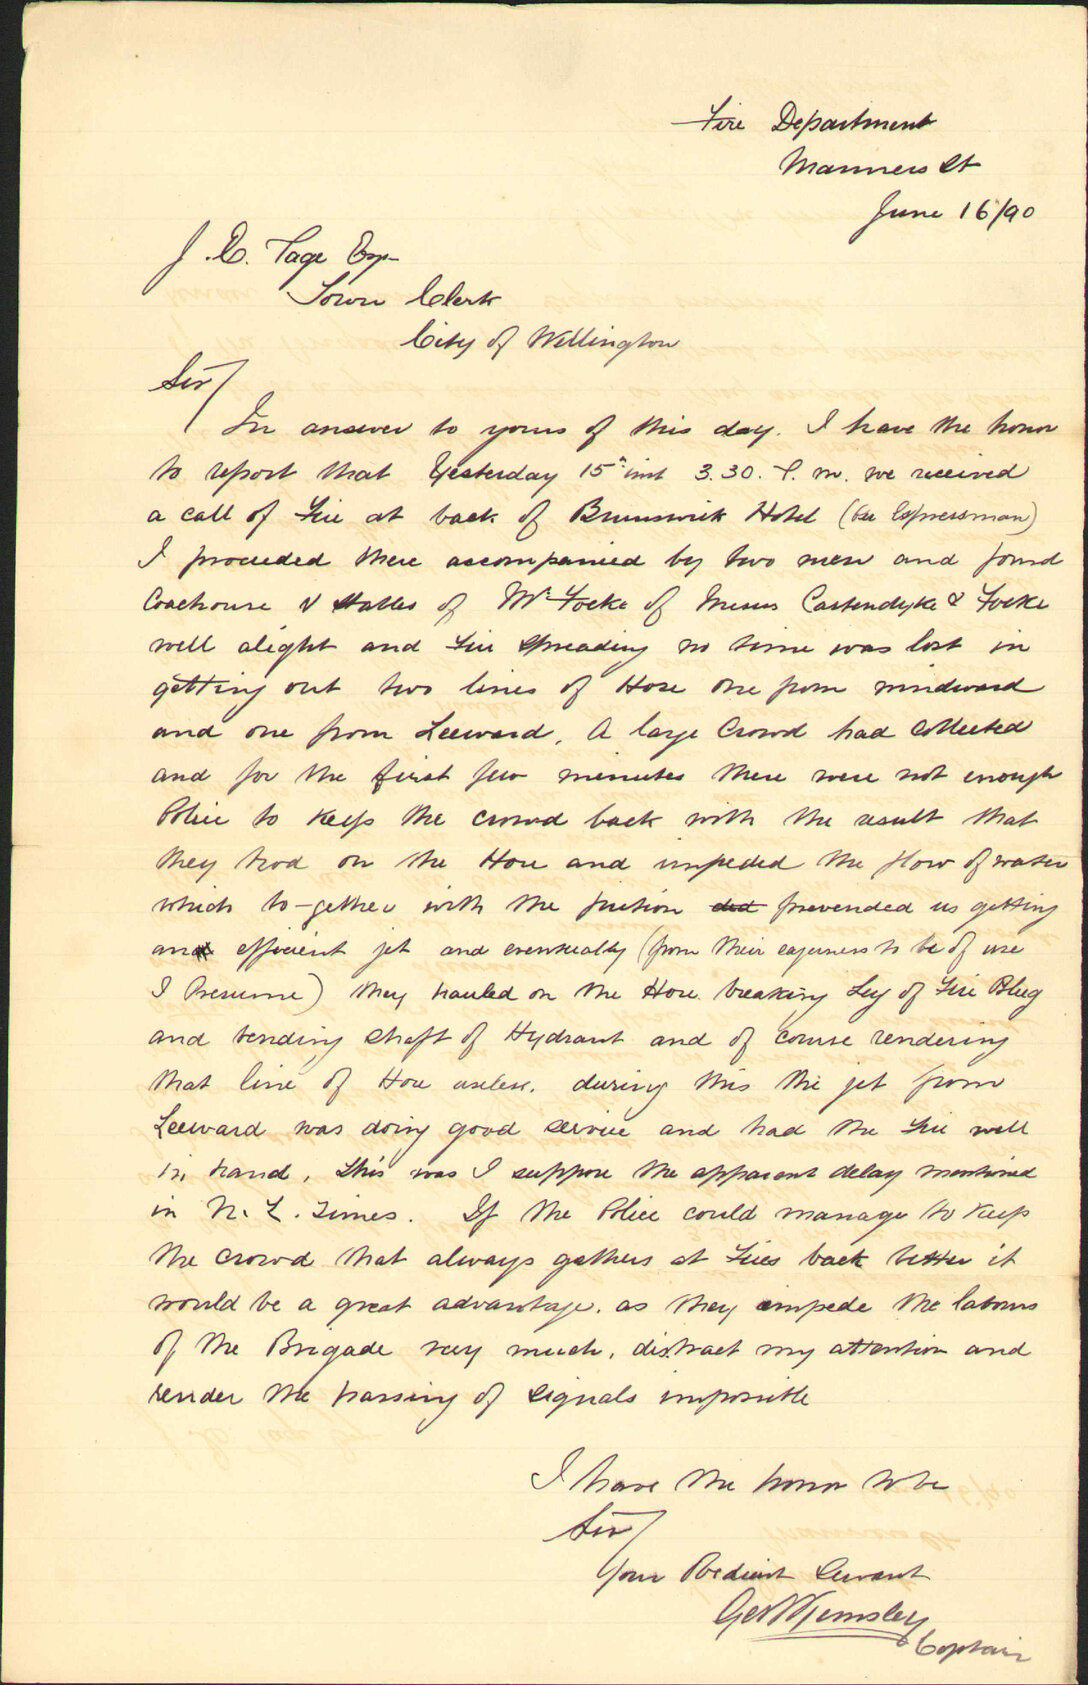 Fire Department
Manners St
June 16/90
J. E. Page Esq
Town Clerk
City of Wellington
Sir/
In answer to yours of this day. I have the honor
to report that Yesterday 15th inst 3.30. P.m. we received
a call of Fire at back of Brunswick Hotel (per Expressman)
I proceeded there accompanied by two men and found
Coachouse & Stables of Mr Focke of Messrs Castendyke & Focke
well alight and Fire Spreading no time was lost in
getting out two lines of Hose one from windward
and one from Leeward. A large Crowd had Collected
and for the first few minutes there were not enough
Police to Keep the crowd back with the result that
they trod on the Hose and impeded the flow of water
which to-gether with the friction did prevended us getting
an efficient jet and eventually (from their eagerness to be of use
I Presume) they hauled on the Hose breaking Leg of Fire Plug
and bending Shaft of Hydrant and of course rendering
that line of Hose useless. during this the jet from
Leeward was doing good service and had the Fire well
in hand, this was I suppose the apparent delay mentioned
in N. Z. Times. If the Police could manage to Keep
the crowd that always gathers at Fires back better it
would be a great advantage. as they impede the labours
of the Brigade very much, distract my attention and
render the passing of Signals impossible
I have the honor to be
Sir/
Your Obedient Servant
Captain